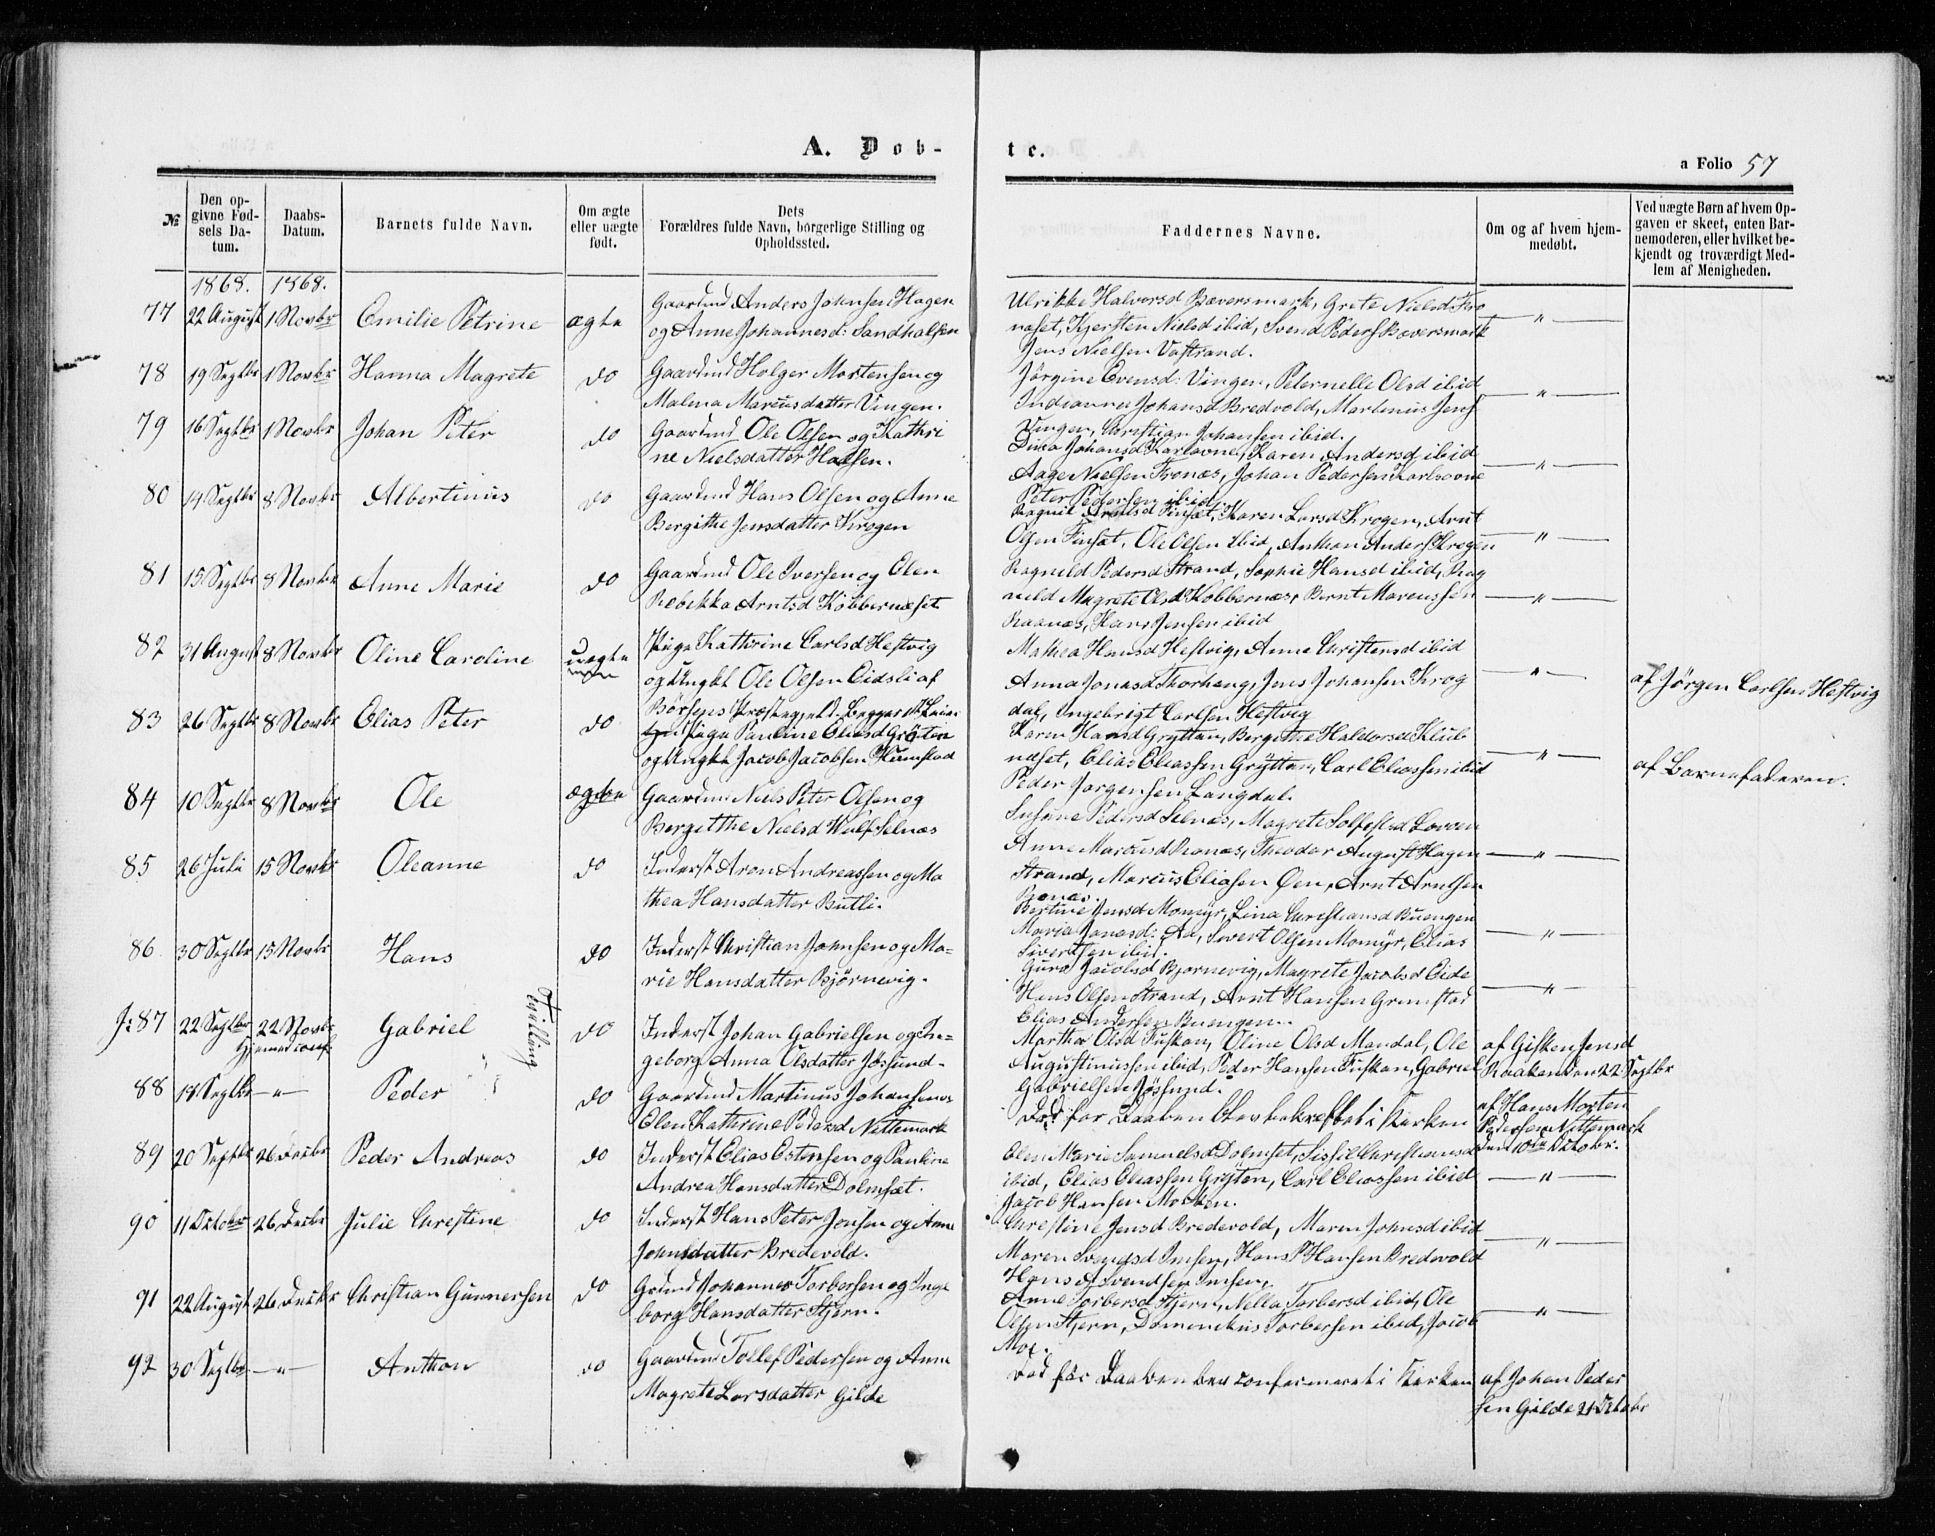 A. Dob-
№
Den op-
givne Fød-
sels Da-
tum.
Daabs-
Datum.
Barnets fulde Navn.
Om ægte
eller uægte
født.
Dets
Forældres fulde Navn, borgerlige Stilling og
Opholdssted.
1868. 1868.
77 22 August 1 Novbr Emilie Petrine ægte Gaardmd Anders Johnsen Hagen
og Anne Johannesd:
78 19 Septbr 1 Novbr Hanna Magrete do Gaardmd Holger Mortensen og
Malena Marcusdatter Vingen.
79 16 Septbr 1 Novbr Johan Peter do Gaardmd Ole Olsen og Kathri
ne Nielsdatter
80 14 Septbr 8 Novbr Albertinus do Gaardmd Hans Olsen og Anne
Bergithe Jensdatter Krogen
81 15 Septbr 8 Novbr Anne Marie do Gaardmd Ole Iversen og Elen
Rebekka Arntsd Kobbernæset
82 31 August 8 Novbr Oline Caroline uægte Pige Kathrine Carlsd Hestvig
og Ungkl Ole Olsen Eidsli af
83 26 Septbr 8 Novbr Elias Peter do Børsens Præstegjeld.
Pige Pauline Eliasd Grÿten
og Ungkl Jacob Jacobsen
84 10 Septbr 8 Novbr Ole ægte Gaardmd Niels Peter Olsen og
Bergitthe Nielsd Wulf Selnæs
85 26 Juli 15 Novbr Oleanne do Inderst Aron Andreassen og Ma
thea Hansdatter Butli.
86 30 Septbr 15 Novbr Hans do Inderst Christian Johnsen og Ma-
rie Hansdatter Bjørnevig.
87 22 Septbr 22 Novbr Gabriel Tvilling do Inderst Johan Gabrielsen og In-
geborg Anna Olsdatter Jøssund.
88 14 Septbr — " — Peder do Gaardmd Martinus Johansen og
Elen Kathrine Pedersd Nettemark
89 20 Septbr 26 Decbr Peder Andreas do Inderst Elias Estensen og Pauline
Andrea Hansdatter Dolmsæt.
90 11 October 26 Decbr Julie Chrestine do Inderst Hans Peter Jonsen og Anne
Johnsdatter Bredevold.
91 22 August 26 Decbr Christian Gunnersen do Grdmd Johannes Torbersen og Inge
borg Hansdatter Stjern.
92 30 Septbr — " — Anthon do Gaardmd Tollef Pedersen og Anne
Magrete Larsdatter Gilde
te.
a Folio 57
Faddernes Navne.
Om og af hvem hjem-
medøbt.
Ved uægte Børn af hvem Op-
gaven er skeet, enten Bar-
nemoderen, eller hvilket be-
kjendt og troværdigt Med-
lem af Menigheden.
Ulrikke Halvorsd Bæversmark, Grete Nielsd Fro
naset, Kjersten Nielsd ibid, Svend Peders Bæversmark — " —
Jens Nielsen Vastrand.
Jörgine Evensd: Vingen, Peternelle Olsd ibid
Indianna Johansd Bredvold, Martinus Jens — " —
Vingen, Christian Johansen ibid.
Dina Johansd Karlsovne, Karen Andersd ibid
Aage Nielsen Fronæs, Johan Pedersen Karlsovne — " —
Peter Pedersen ibid
Ragnil Arntsd Finsæt, Karen Larsd Krogen, Arnt
Olsen Finsæt, Ole Olsen ibid, Anthon Anders Krogen — " —
Ragnild Pedersd Strand, Sophie Hansd ibid, Rag
nild Magrete Olsd Kobbernæs, Bernt Marcussen — " —
Raanæs, Hans Jensen ibid
Mathea Hansd Hestvig, Anne Christensd ibid
Anna Jonasd Thorhaug, Jens Johansen Krog — " — af Jørgen Carlsen Hestvig
dal, Ingebrigt Carlsen Hestvig
Karen Hansd Grytten, Bergithe Haldorsd Klub
næset, Elias Eliassen Grÿtten, Carl Eliassen ibid — " — af Barnefaderen.
Peder Jørgensen Langdal.
Susane Pedersd Selnæs, Magrete
Anne Marcusd Ranæs, Theodor August Hagen — " —
Strand, Marcus Eliasen Øen, Arnt Arntsen
Bertine Jensd Momyr, Lina Christiansd Buengen
Maria Jonasd: Aa, Sivert Olsen Momÿr, Elias — " —
Sivertsen ibid.
Gura Jacobsd Bjornevig, Magrete Jacobsd Eide
Hans Olsen Strand, Arnt Hansen Grimstad — " —
Elias Andersen Buengen.
Martha Olsd Fuskan, Oline Olsd Mandal, Ole af Gisken Jensd
Augustinussen ibid, Peder Hansen Fuskan, Gabriel Raaken den 22 Septbr
Gabrielsen Jøssund.
Død før Daaben blev bekræftet i Kirken af Hans Morten
Pedersen Nettemark
den 10de October.
Elen Marie Samuelsd Dolmset, Sissil Christiansd
ibid, Elias Eliassen Grÿten, Carl Eliassen ibid — " —
Jacob Hansen
Chrestine Jensd Bredevold, Maren Johnsd ibid
Maren Svendsd Imsen, Hans P Hansen Bredvold — " —
Hans A Svendsen Imsen.
Anne Torbersd Stjern, Nella Torbersd ibid, Ole
Olsen Stjern, Domenikus Torbersen ibid, Jacob — " —
Moe.
Død før Daaben blev confermeret i Kirken af Johan Peder
sen Gilde 21 Octobr